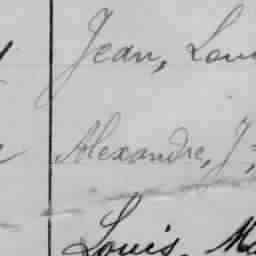 Jean, Lou
Alexandre, J
Louis, Ma